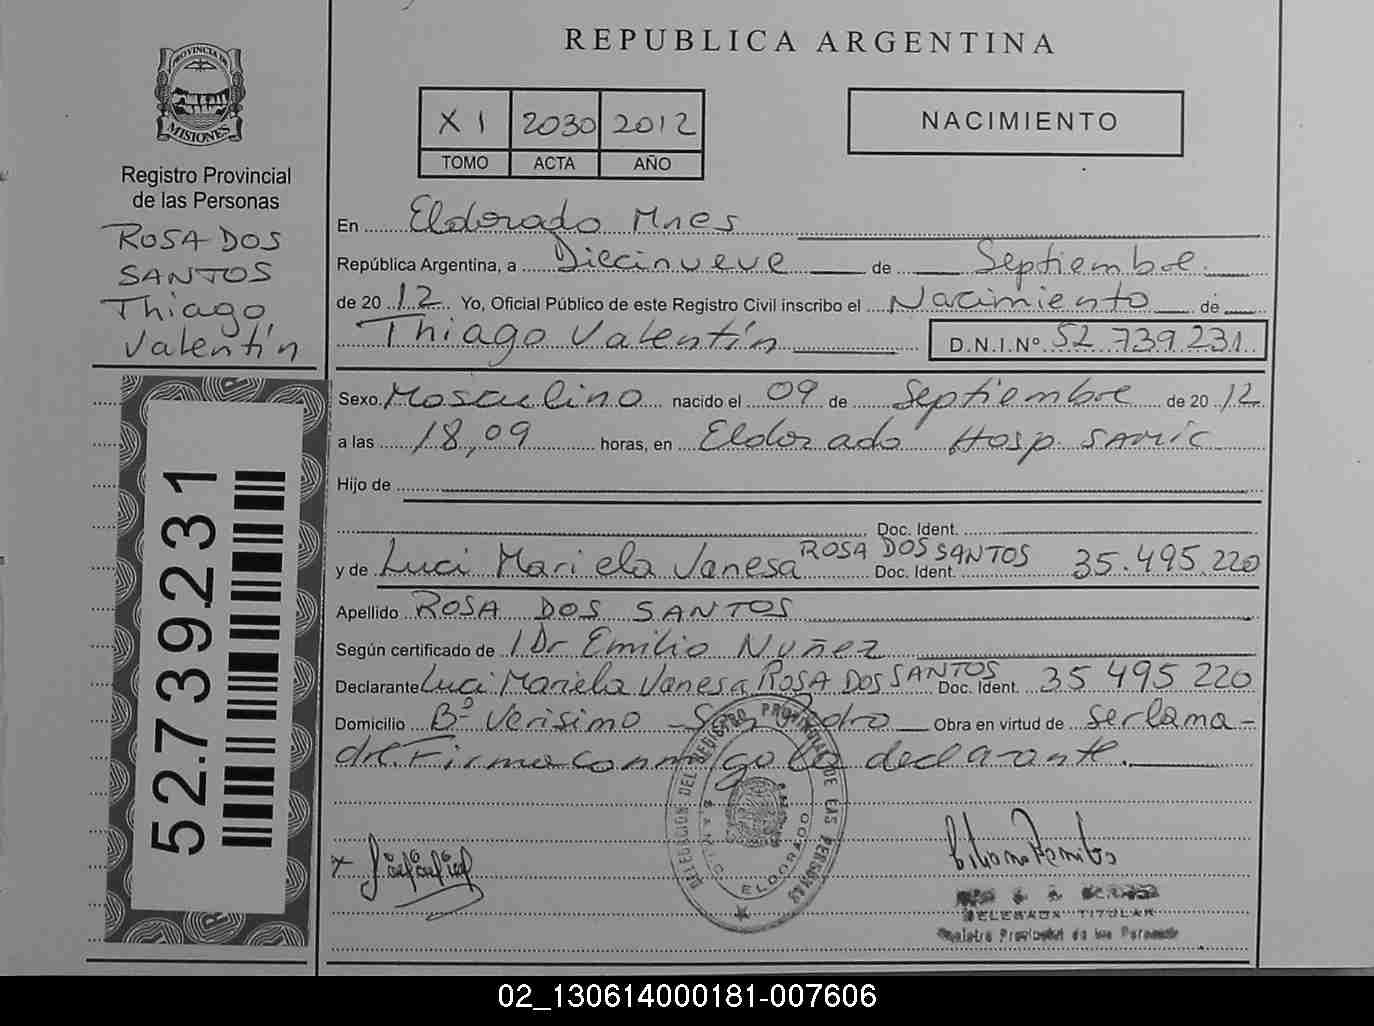 PROVINCIA DE
MISIONES
Registro Provincial
de las Personas
ROSA DOS
SANTOS
Thiago
Valentín
52.739.231
REPUBLICA ARGENTINA
XI 2030 2012
TOMO ACTA AÑO
NACIMIENTO
En Eldorado Mnes
República Argentina, a Diecinueve de Septiembre
de 2012 Yo, Oficial Público de este Registro Civil inscribo el Nacimiento de
Thiago Valentín D.N.I.Nº 52 739.231
Sexo Masculino nacido el 09 de Septiembre de 2012
a las 18,09 horas, en Eldorado Hosp. SAMIC
Hijo de
Doc. Ident.
y de Luci Mariela Vanesa ROSA DOS SANTOS Doc. Ident. 35.495.220
Apellido ROSA DOS SANTOS
Según certificado de Dr Emilio Nuñez
Declarante Luci Mariela Vanesa ROSA DOS SANTOS Doc. Ident. 35 495 220
Domicilio Bº Verisimo San Pedro Obra en virtud de ser la ma-
dre. Firma conmigo la declarante.
DELEGACION DEL REGISTRO PROVINCIAL DE LAS PERSONAS
SAMIC ELDORADO
DELEGADA TITULAR
Registro Provincial de las Personas
02_130614000181-007606